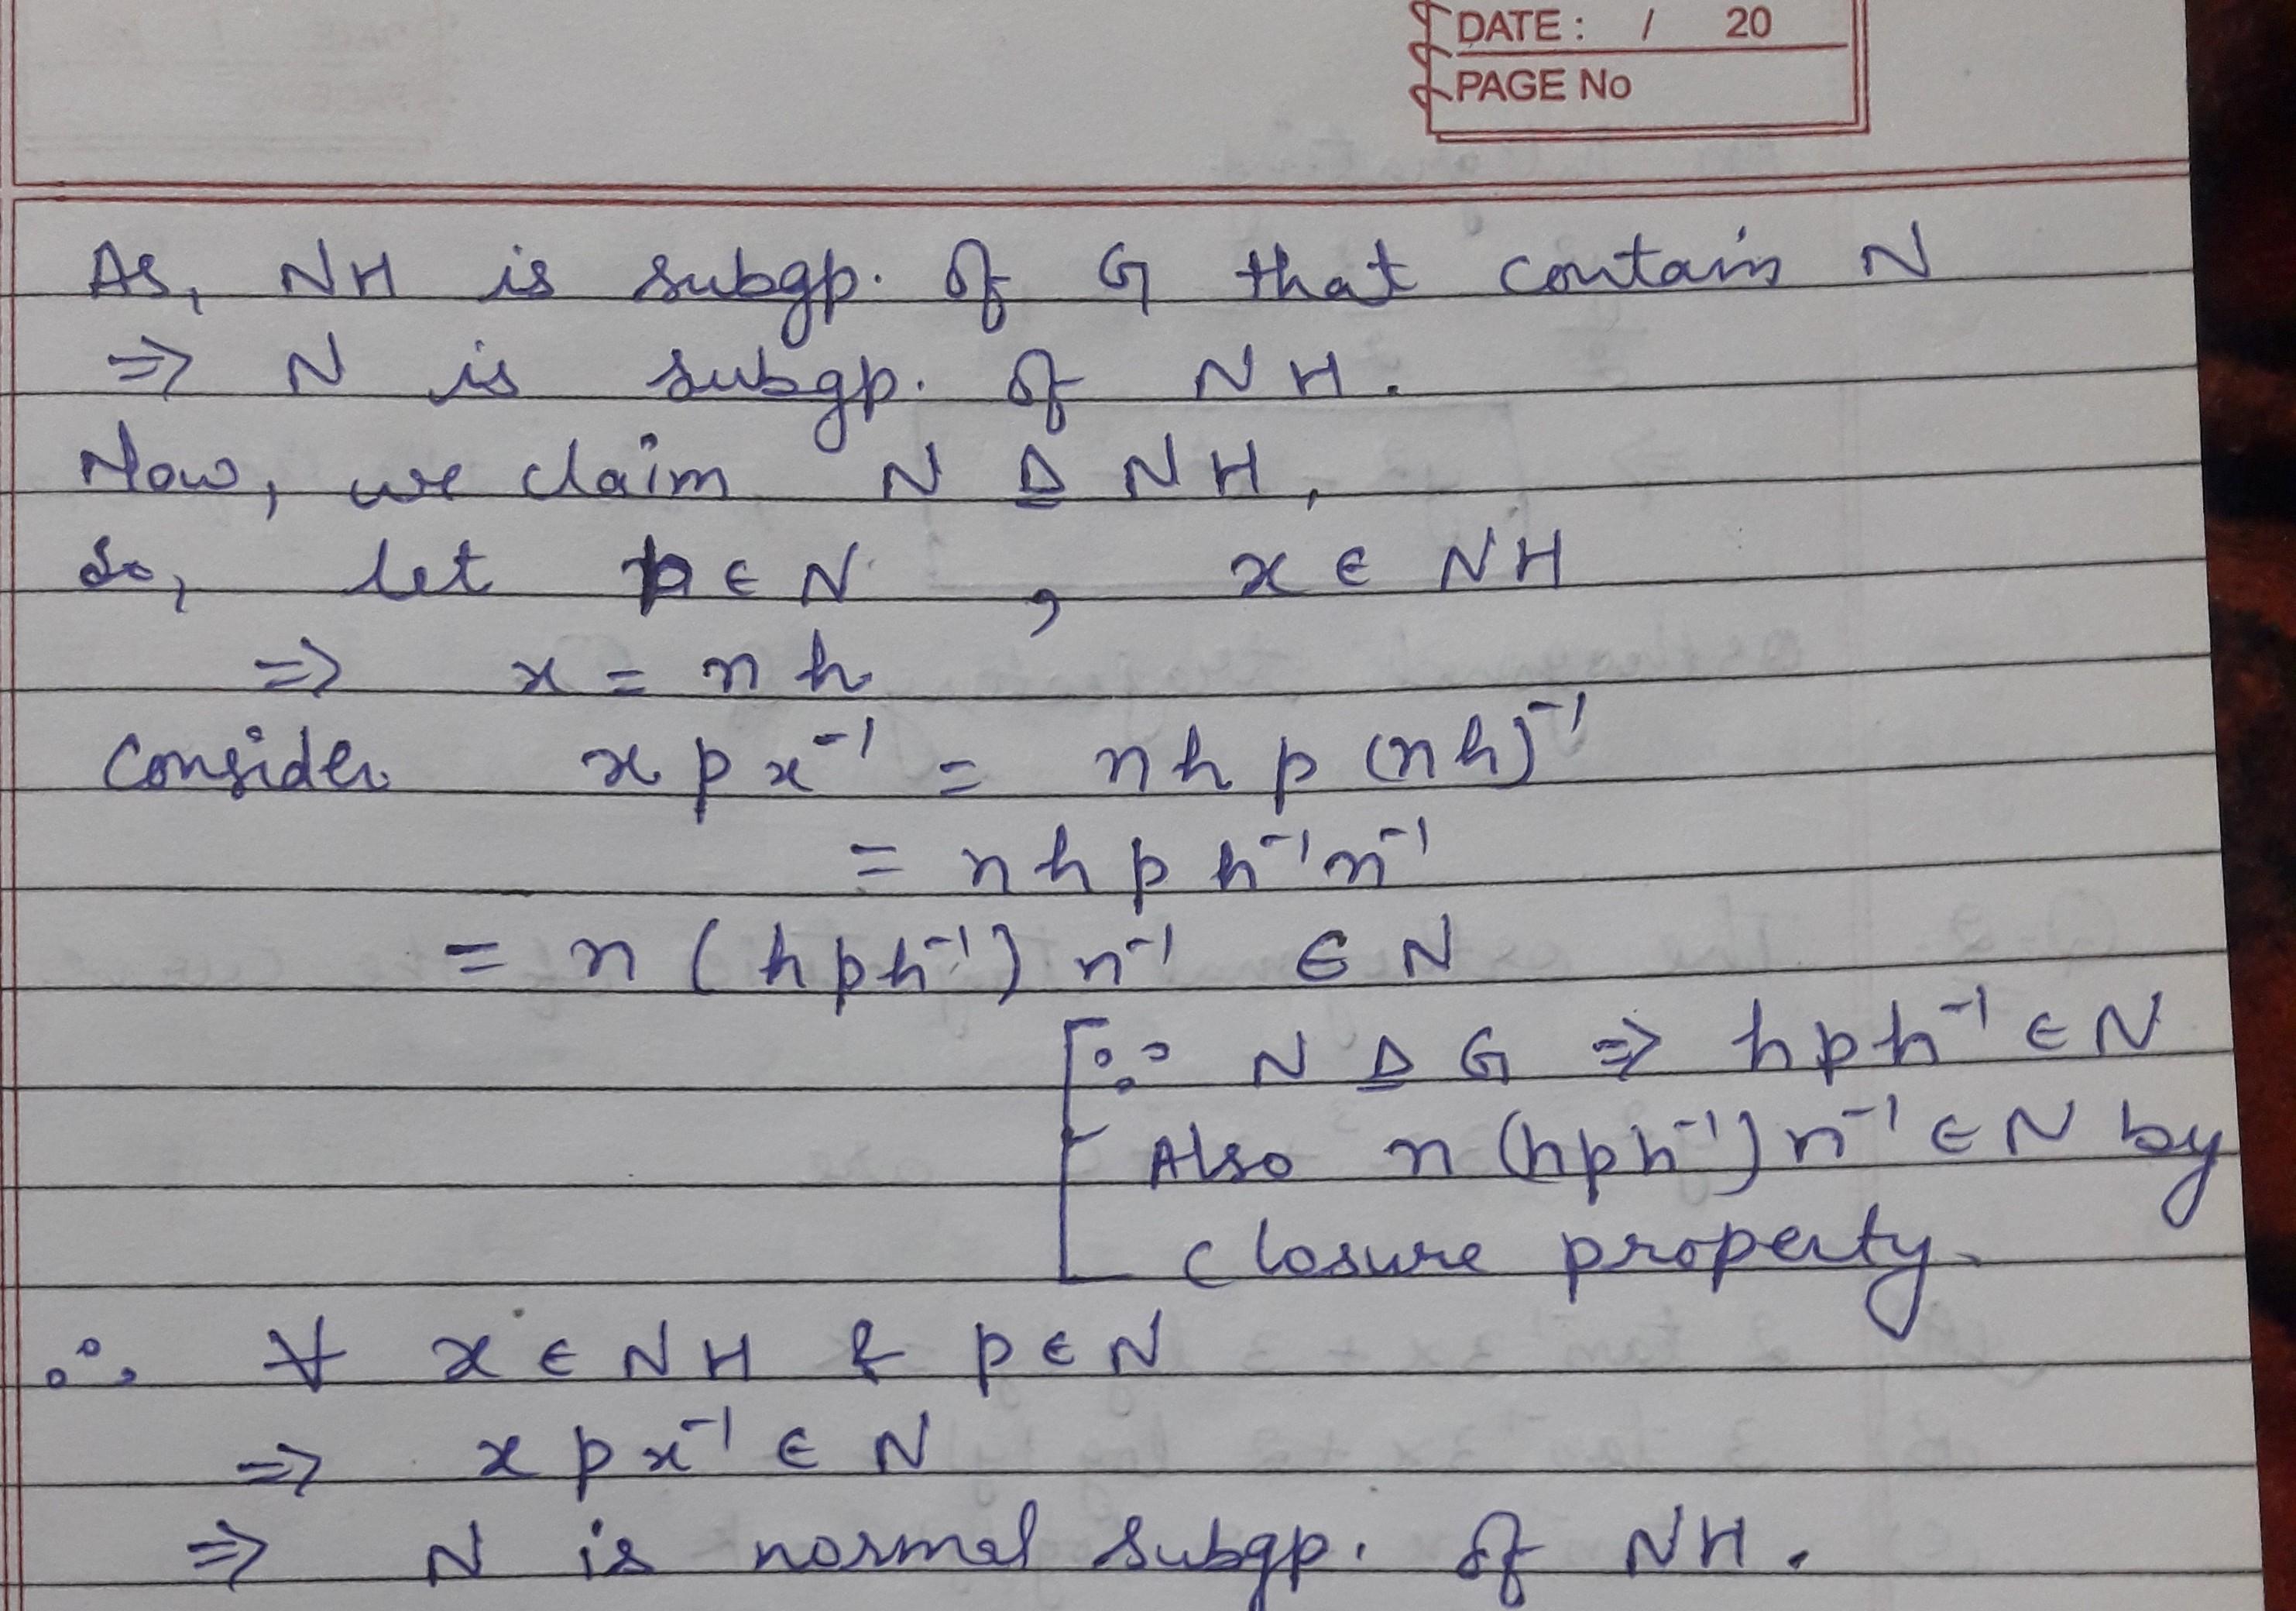 DATE : / 20
PAGE No
As, NH is subgp. of G that contain N
⇒ N is subgp. of NH.
Now, we claim N ⊴ NH,
So, let p ∈ N , x ∈ NH
⇒ x = n h
Consider x p x⁻¹ = n h p (n h)⁻¹
= n h p h⁻¹ n⁻¹
= n ( h p h⁻¹ ) n⁻¹ ∈ N
[∵ N ⊴ G ⇒ h p h⁻¹ ∈ N
Also n (h p h⁻¹) n⁻¹ ∈ N by
closure property.
∴ ∀ x ∈ NH & p ∈ N
⇒ x p x⁻¹ ∈ N
⇒ N is normal subgp. of NH.